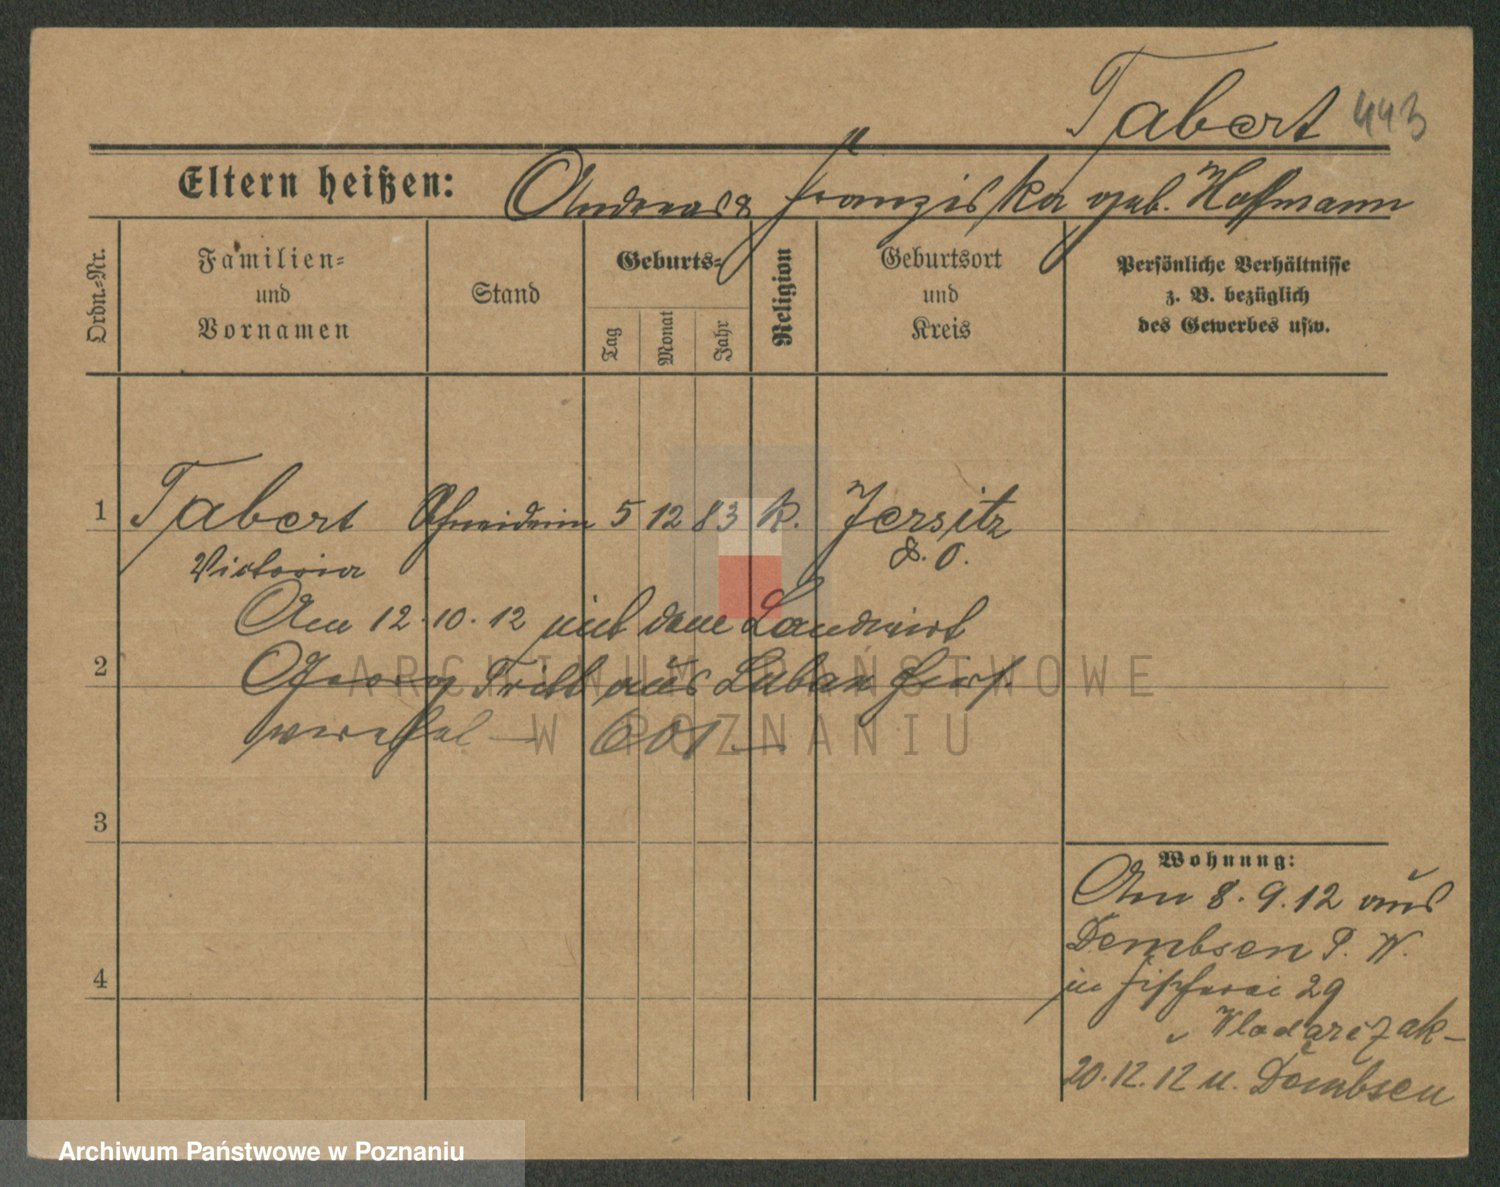 Tabert 443
Eltern heißen: Andreas & Franziska geb. Hoffmann
Ordn.-Nr.
Familien-
und
Vornamen
Stand
Geburts-
Tag
Monat
Jahr
Religion
Geburtsort
und
Kreis
Persönliche Verhältnisse
z. B. bezüglich
des Gewerbes usw.
1 Tabert Schneiderin 5 12 83 k. Jersitz
Victoria P. O.
Am 12.10.12 mit dem Landwirt
2 Georg aus Luban
601
3
4
Wohnung:
Am 8.9.12 aus
Dembsen P. W.
in Fischerei 29
Wlodarczak
20.12.12 n. Dembsen
ARCHIWUM PAŃSTWOWE
W POZNANIU
Archiwum Państwowe w Poznaniu